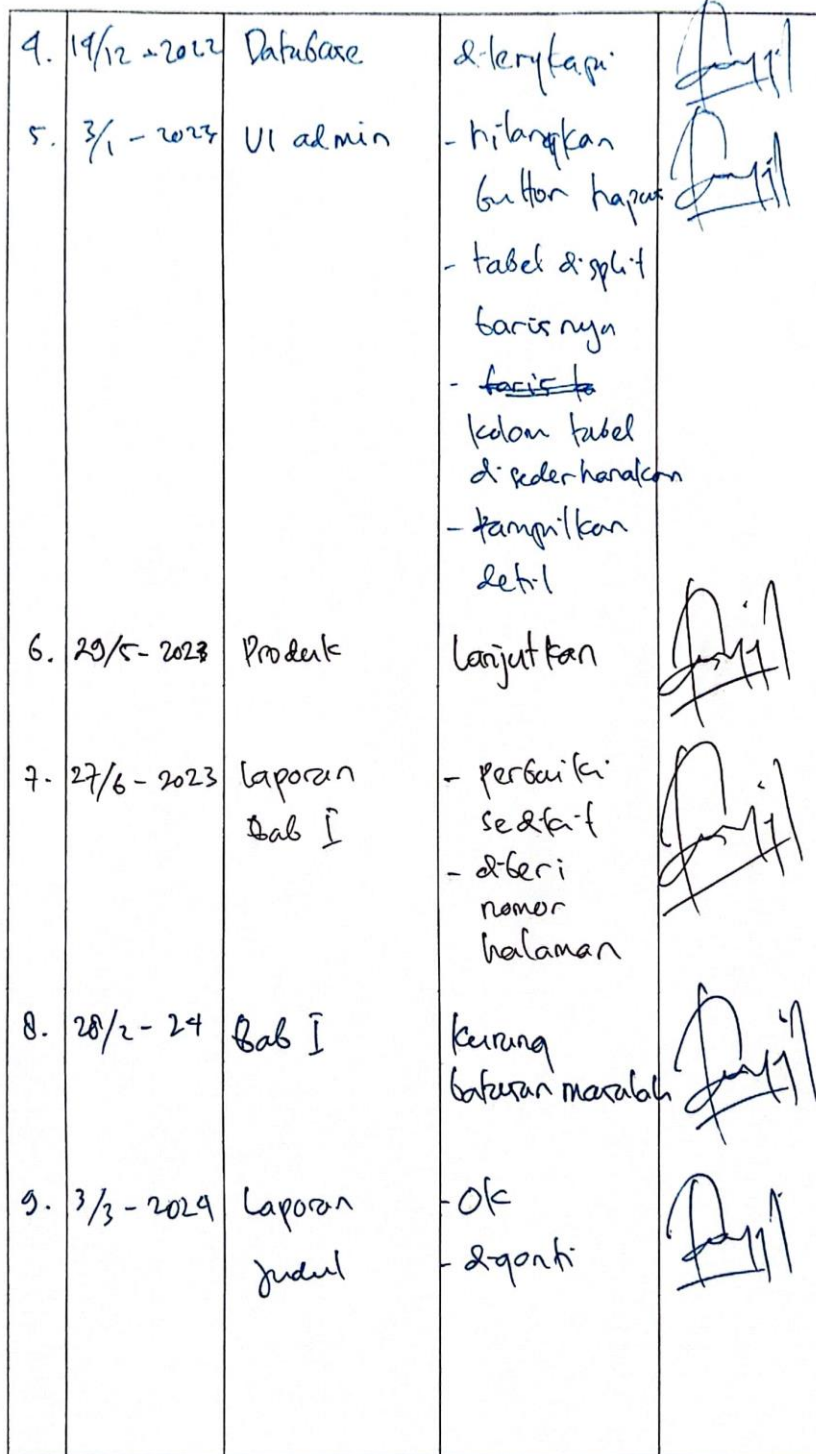 4. 19/12 - 2022 Database dilengkapi
5. 3/1 - 2023 UI admin - hilangkan
button hapus
- tabel displit
barisnya
- baris ta
kolom tabel
disederhanakan
- tampilkan
detil
6. 29/5 - 2023 Produk lanjutkan
7. 27/6 - 2023 Laporan - perbaiki
Bab I sedikit
- diberi
nomor
halaman
8. 28/2 - 24 Bab I kurung
batasan masalah
9. 3/3 - 2024 Laporan - Ok
judul - diganti